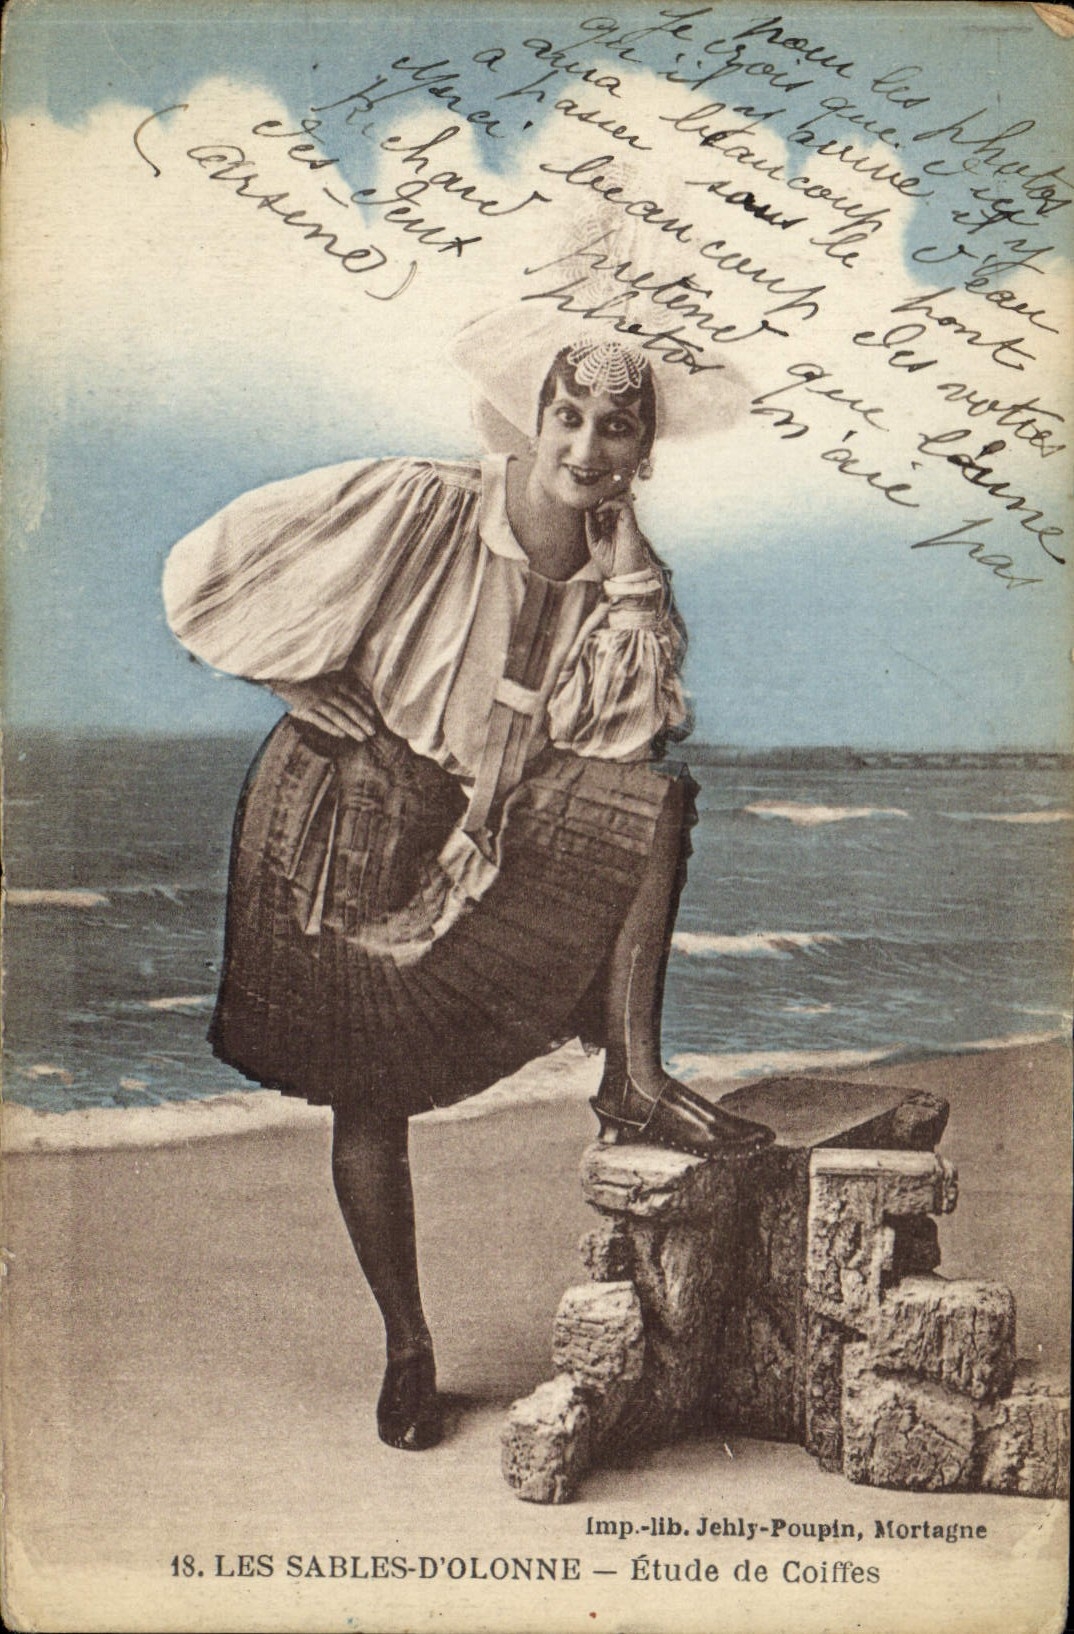 pour les photos
Je crois que d'ici
qu'il y arrive il y
aura beaucoup d'eau
a passer sous le pont
Merci beaucoup des votres
Richard pretend que l'aine
des deux photos n'aie pas
(Arsène)
Imp.-lib. Jehly-Poupin, Mortagne
18. LES SABLES-D'OLONNE — Étude de Coiffes